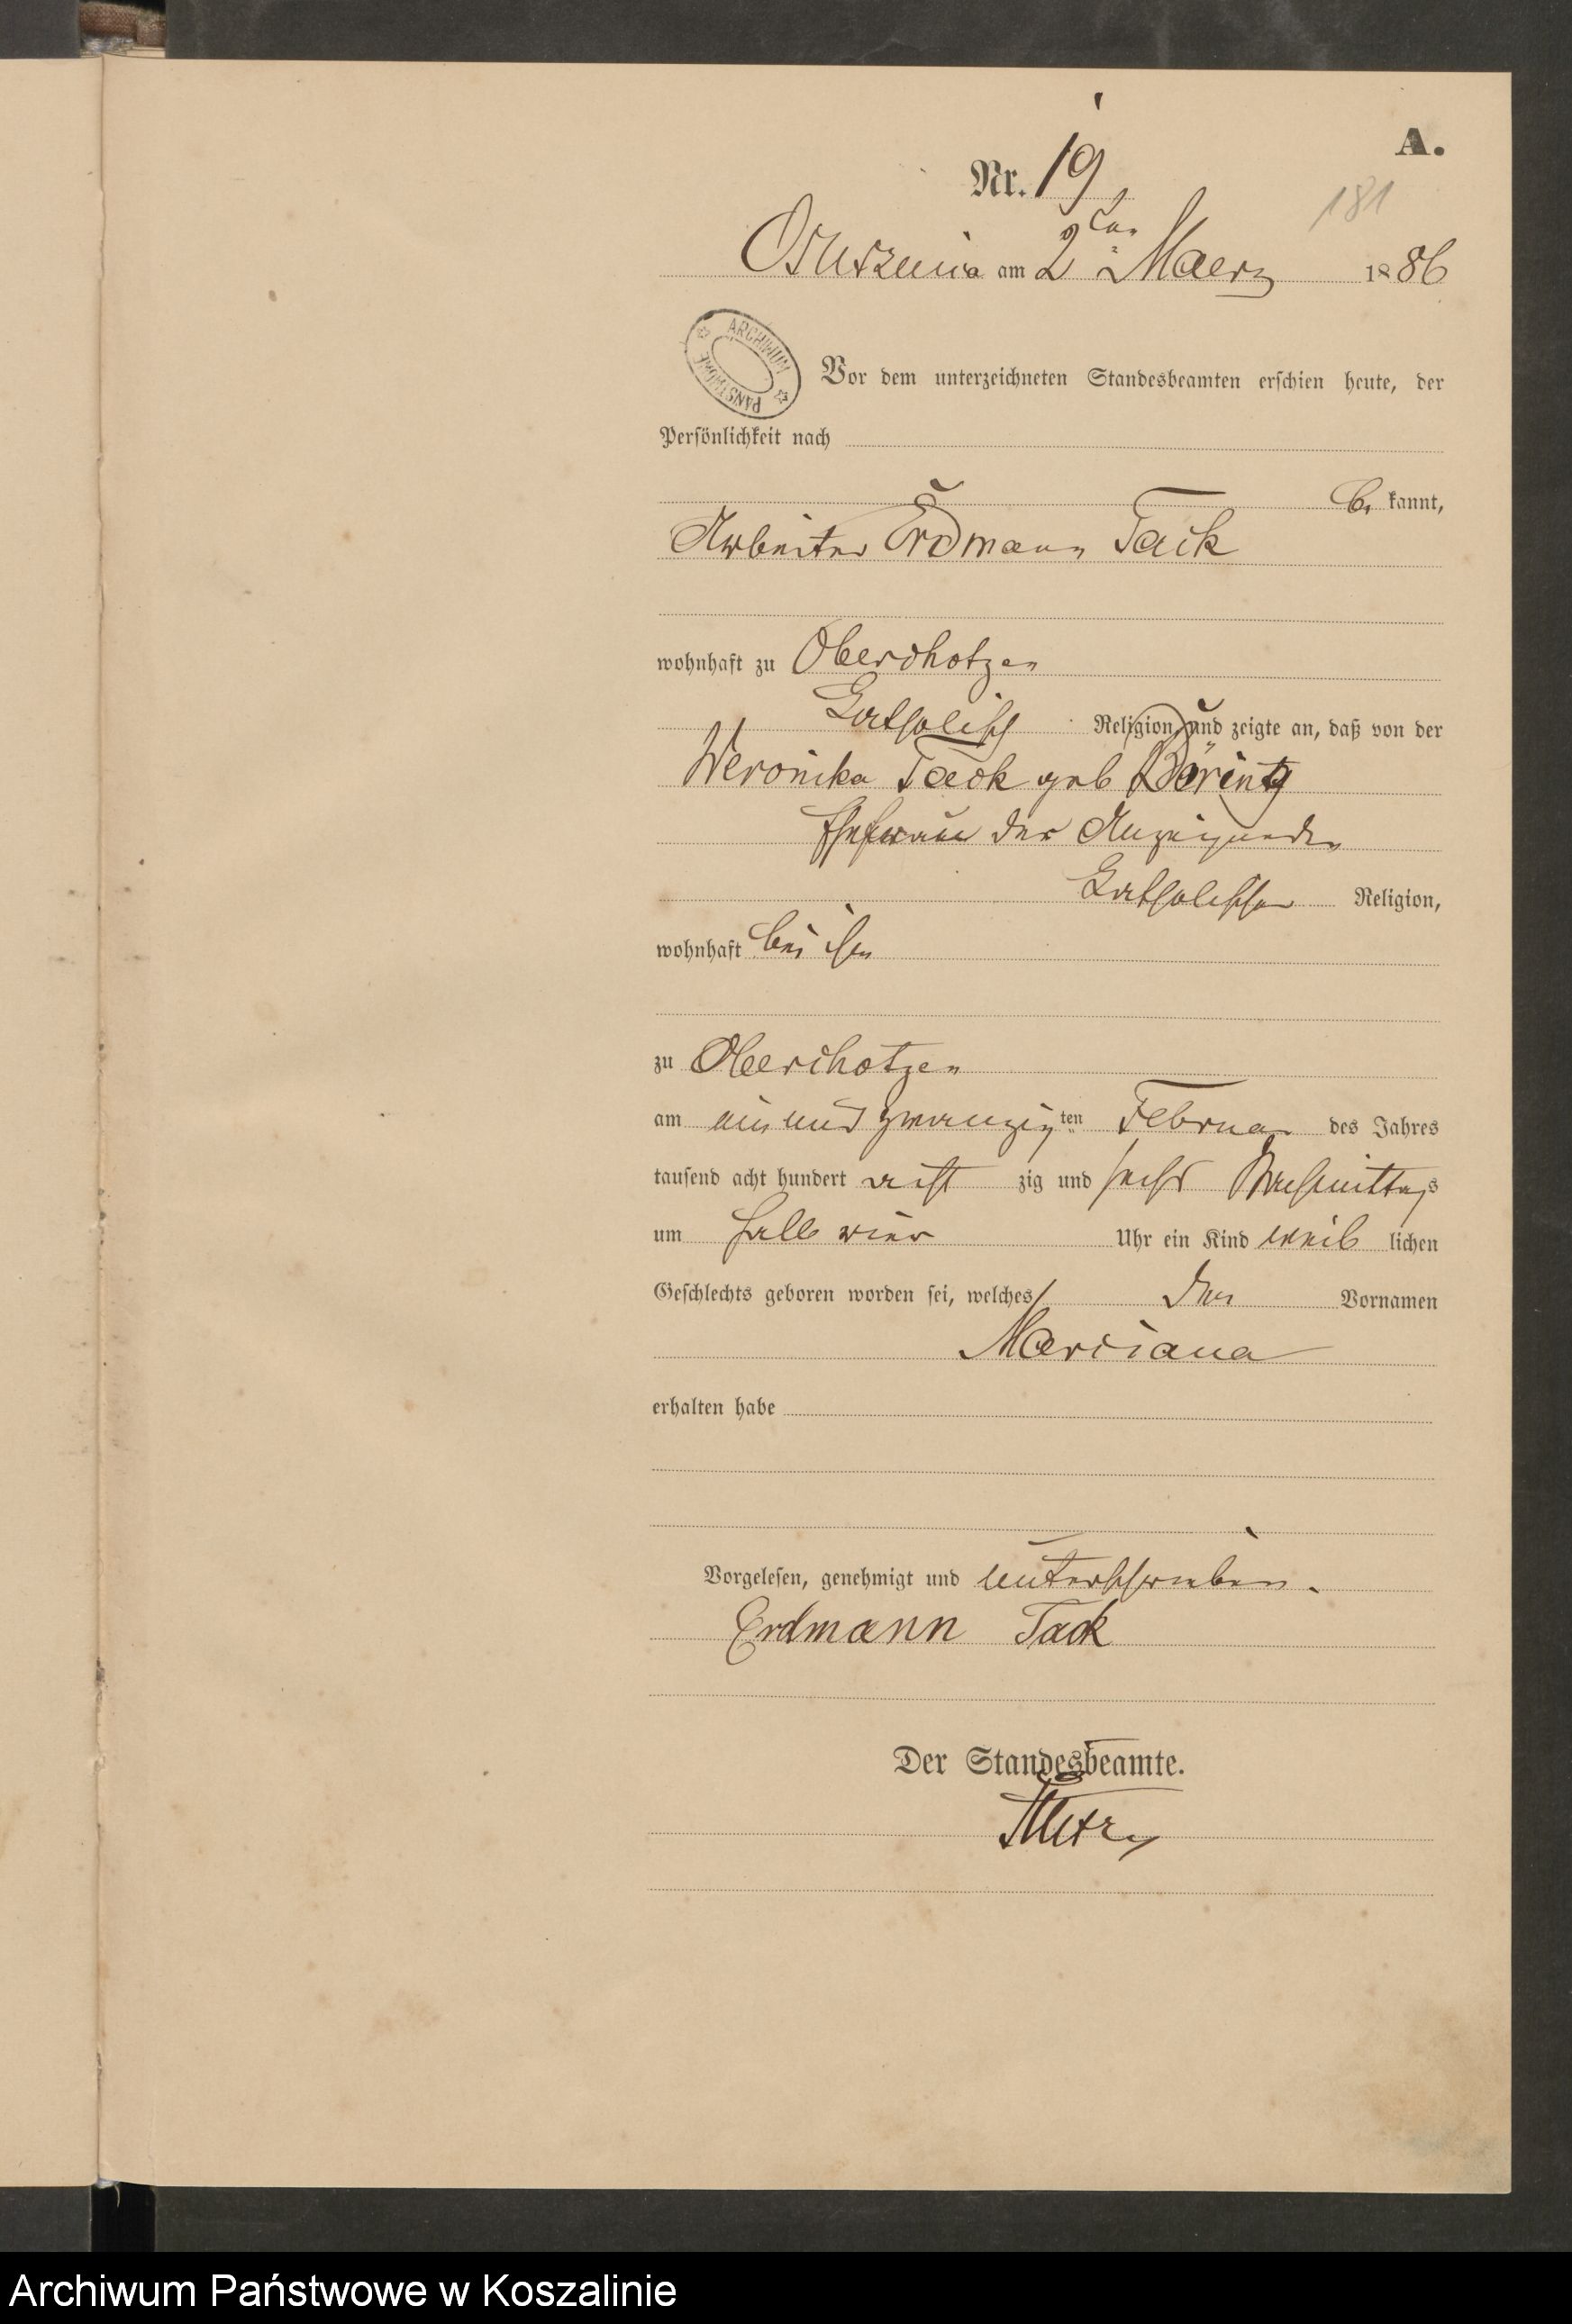 A.
Nr. 19
181
Osuszniça am 2ten Maerz 1886
ARCHIWUM PAŃSTWOWE
Vor dem unterzeichneten Standesbeamten erschien heute, der
Persönlichkeit nach
be kannt,
Arbeiter Erdmann Tack
wohnhaft zu Oberchotzen
katholisch Religion, und zeigte an, daß von der
Weronika Tack geb
Ehefrau des Anzeigenden
katholischer Religion,
wohnhaft bei ihm
zu Oberchotzen
am ein und zwanzigten Februar des Jahres
tausend acht hundert acht zig und sechs Nachmittags
um halb vier Uhr ein Kind weib lichen
Geschlechts geboren worden sei, welches den Vornamen
Marciana
erhalten habe
Vorgelesen, genehmigt und unterschrieben.
Erdmann Tack
Der Standesbeamte.
Archiwum Państwowe w Koszalinie